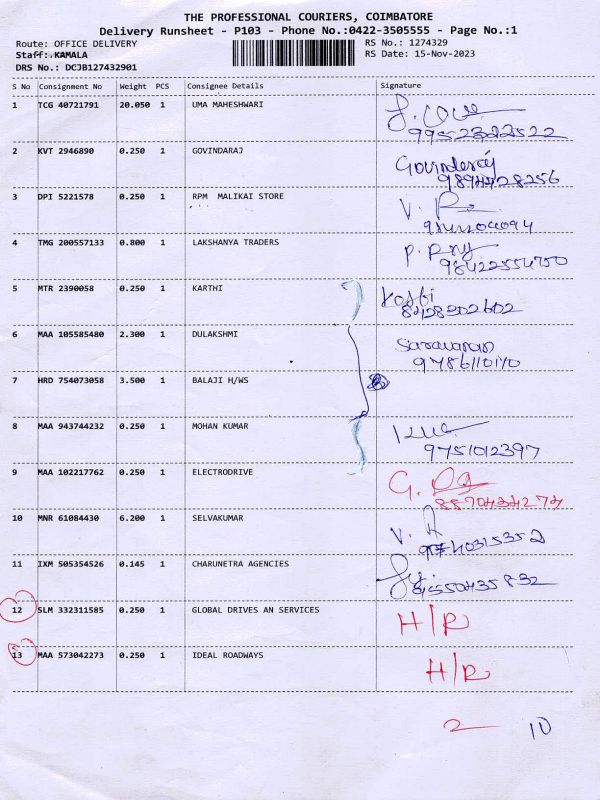 THE PROFESSIONAL COURIERS, COIMBATORE
Delivery Runsheet - P103 - Phone No.:0422-3505555 - Page No.:1
Route: OFFICE DELIVERY RS No.: 1274329
Staff: KAMALA RS Date: 15-Nov-2023
DRS No.: DCJB127432901
S No Consignment No Weight PCS Consignee Details Signature
1 TCG 40721791 20.050 1 UMA MAHESHWARI
2 KVT 2946890 0.250 1 GOVINDARAJ Govinderaj
9894428256
3 DPI 5221578 0.250 1 RPM MALIKAI STORE
4 TMG 200557133 0.800 1 LAKSHANYA TRADERS
5 MTR 2390058 0.250 1 KARTHI
8428302602
6 MAA 105585480 2.300 1 DULAKSHMI Saravanan
9786110170
7 HRD 754073058 3.500 1 BALAJI H/WS
8 MAA 943744232 0.250 1 MOHAN KUMAR
9751012397
9 MAA 102217762 0.250 1 ELECTRODRIVE
8870434274
10 MNR 61084430 6.200 1 SELVAKUMAR
11 IXM 505354526 0.145 1 CHARUNETRA AGENCIES
12 SLM 332311585 0.250 1 GLOBAL DRIVES AN SERVICES H/R
13 MAA 573042273 0.250 1 IDEAL ROADWAYS H/R
2 10